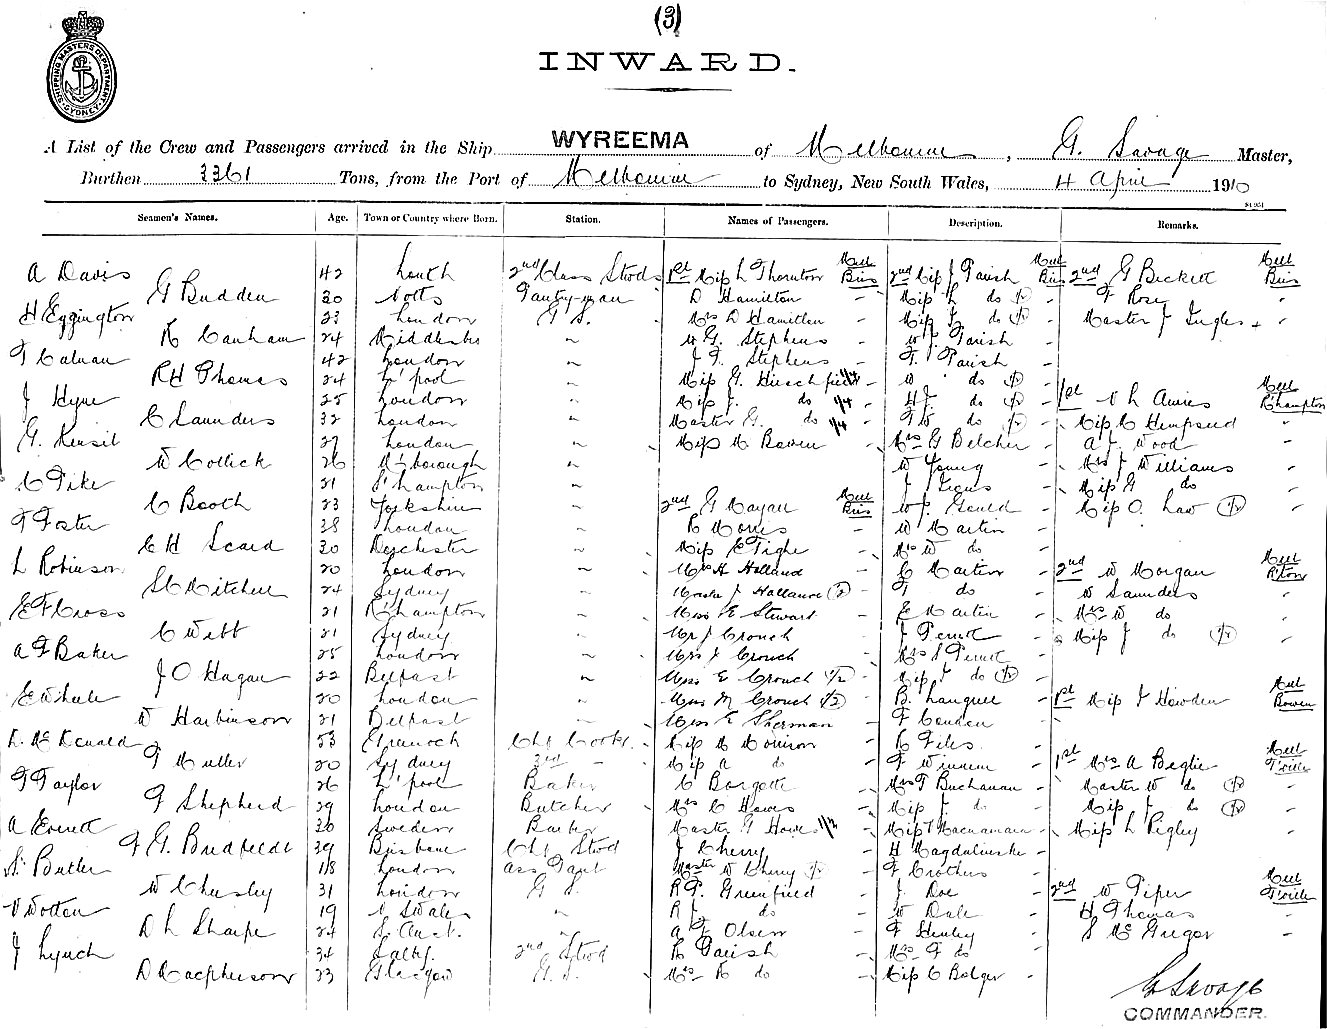 (3)
SHIPPING MASTERS DEPARTMENT SYDNEY
INWARD.
A List of the Crew and Passengers arrived in the Ship WYREEMA of Melbourne, G. Savage Master,
Burthen 3361 Tons, from the Port of Melbourne to Sydney, New South Wales, 4 April 1910
Seamen's Names. Age. Town or Country where Born. Station. Names of Passengers. Description. Remarks.
A Davis 42 Louth 2nd Class Stwds 1st Miss L Thornton Melb Bris 2nd Miss J Parish Melb Bris 2nd G Beckett Melb Bris
G Budden 20 Notts Pantryman D Hamilton Miss L do F Rose
H Eggington 23 London G. S. Mrs D Hamilton Miss J do Master J Ingles
R Canham 24 W G. Stephens W J. Parish
F Calnan 42 London J F. Stephens F. J. Parish
RH Thomas 24 L'pool Miss G. Hirschfield W do
J Hyne 25 London Miss J. do 1/4 H J do 1st V L Amies Melb R'hampton
C Saunders 32 London Master G. do 1/4 F W do Miss C Hempsend
G. Kensil 27 London Miss M Bowen Mrs G Belcher A J. Wood
W Collick 26 M'borough W Young Mrs J Williams
C Pike 21 S'hampton J Miss G do
C Booth 23 Yorkshire 2nd G Melb Bris W J. Gould Miss O. Law
F Foster 38 London R Morris W Martin
C H Scard 30 Dorchester Miss E Tighe Mrs W do
L Robinson 20 London Mrs H Holland C Martin 2nd W Morgan Melb R'ton
St C Mitchell 24 Sydney Master J Holland F do W Saunders
E F Cross 21 R'hampton Miss E Stewart E Martin Mrs W do
C Webb 21 Sydney Mr J Crouch J Perrott Miss J do
A F Baker 25 London Mrs J Crouch Mrs S Perrott
J O Hagan 22 Belfast Miss E Crouch 1/2 Miss J do
E Whele 20 London Miss M Crouch 1/2 B. 1st Miss J Howden Melb Bowen
W Harbinson 21 Belfast Miss E Sherman F
L. McDonald 53 Greenock Chf Cook. Miss M R Files
F Muller 20 Sydney 3rd Miss A do F 1st Mrs A Beglie Melb T'ville
F Taylor 26 L'pool Baker C Mrs F Buchanan Master W do
F Shepherd 29 London Butcher Mrs C Howes Miss J do Miss J do
A Everett 30 Sweden Barber Master G Howes Miss F Macnamara Miss L Pegley
F G. Bredfeldt 39 Brisbane Chf Stwd J Cherry H Magdalinski
S. Butler 18 London Ass Pant Master W Cherry F Crothers
W Chesley 31 London G S. R P. Greenfield J Doe 2nd W Piper Melb T'ville
V Wotton 19 N S Wales R J do W Dale H Thomas
D L Sharpe 24 S. Aust. A F Olsen F Henley S McGregor
J Lynch 34 2nd Stwd R Parish Mrs F do
D Macpherson 33 Glasgow G. S. Mrs R do Miss C Bolger
G Savage
COMMANDER.